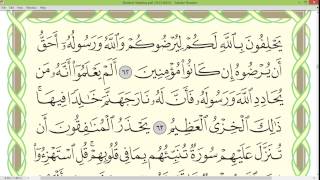 يَحْلِفُونَ بِٱللَّهِ لَكُمْ لِيُرْضُوكُمْ وَٱللَّهُ وَرَسُولُهُۥٓ أَحَقُّ
أَن يُرْضُوهُ إِن كَانُوا۟ مُؤْمِنِينَ ٦٢ أَلَمْ يَعْلَمُوٓا۟ أَنَّهُۥ مَن
يُحَادِدِ ٱللَّهَ وَرَسُولَهُۥ فَأَنَّ لَهُۥ نَارَ جَهَنَّمَ خَٰلِدًا فِيهَا ۚ
ذَٰلِكَ ٱلْخِزْىُ ٱلْعَظِيمُ ٦٣ يَحْذَرُ ٱلْمُنَٰفِقُونَ أَن
تُنَزَّلَ عَلَيْهِمْ سُورَةٌ تُنَبِّئُهُم بِمَا فِى قُلُوبِهِمْ ۚ قُلِ ٱسْتَهْزِءُوٓا۟